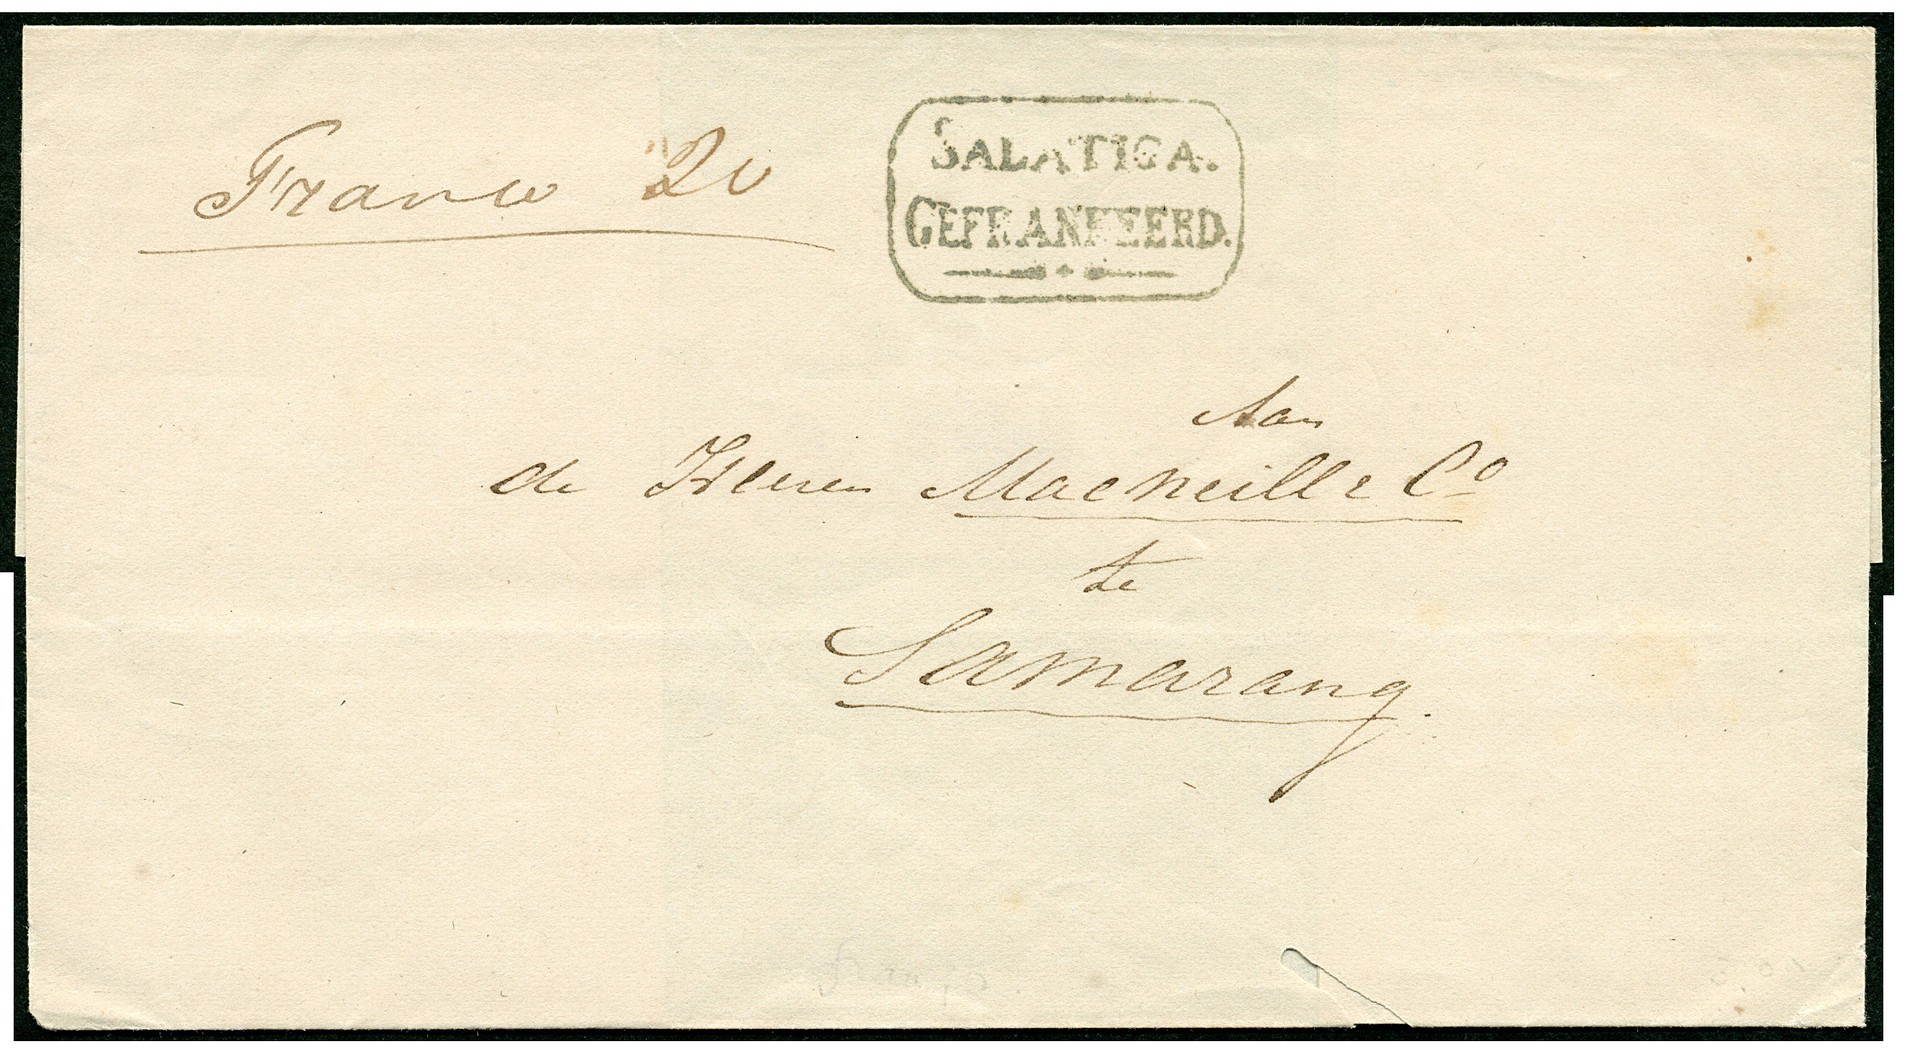 Franco 20
SALATIGA.
GEFRANKEERD.
Aan
de Heeren MacNeill & Co
te
Samarang.